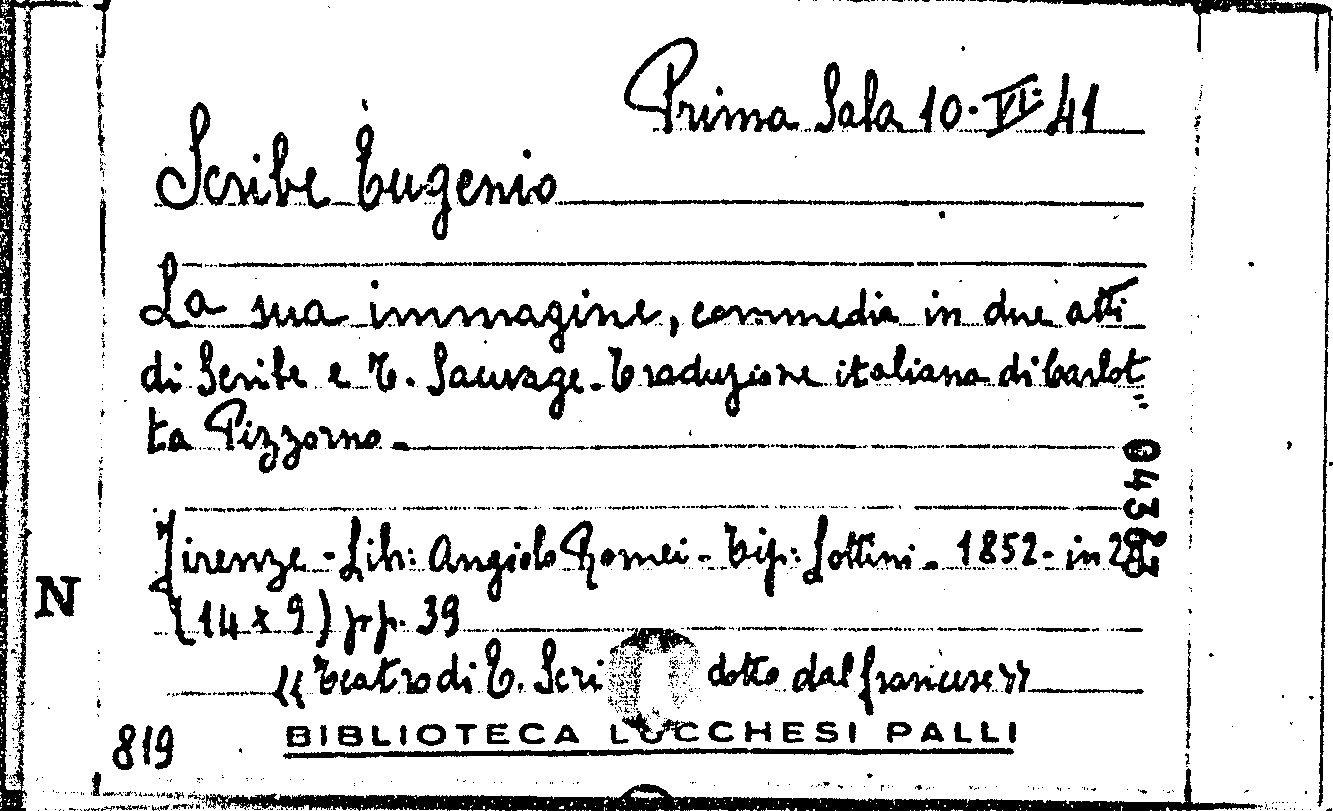 Prima Sala 10. VI. 41
Scribe Eugenio
La sua immagine, commedia in due atti
di Scribe e T. Sauvage. Traduzione italiana di Carlot
ta Pizzorno.
Firenze - Lib: Angiolo Romei - Tip: Sottini. 1852 - in 28°
(14 x 9) pp. 39
« Teatro di E. Scri dotto dal francese »
819
BIBLIOTECA LUCCHESI PALLI
N
04362